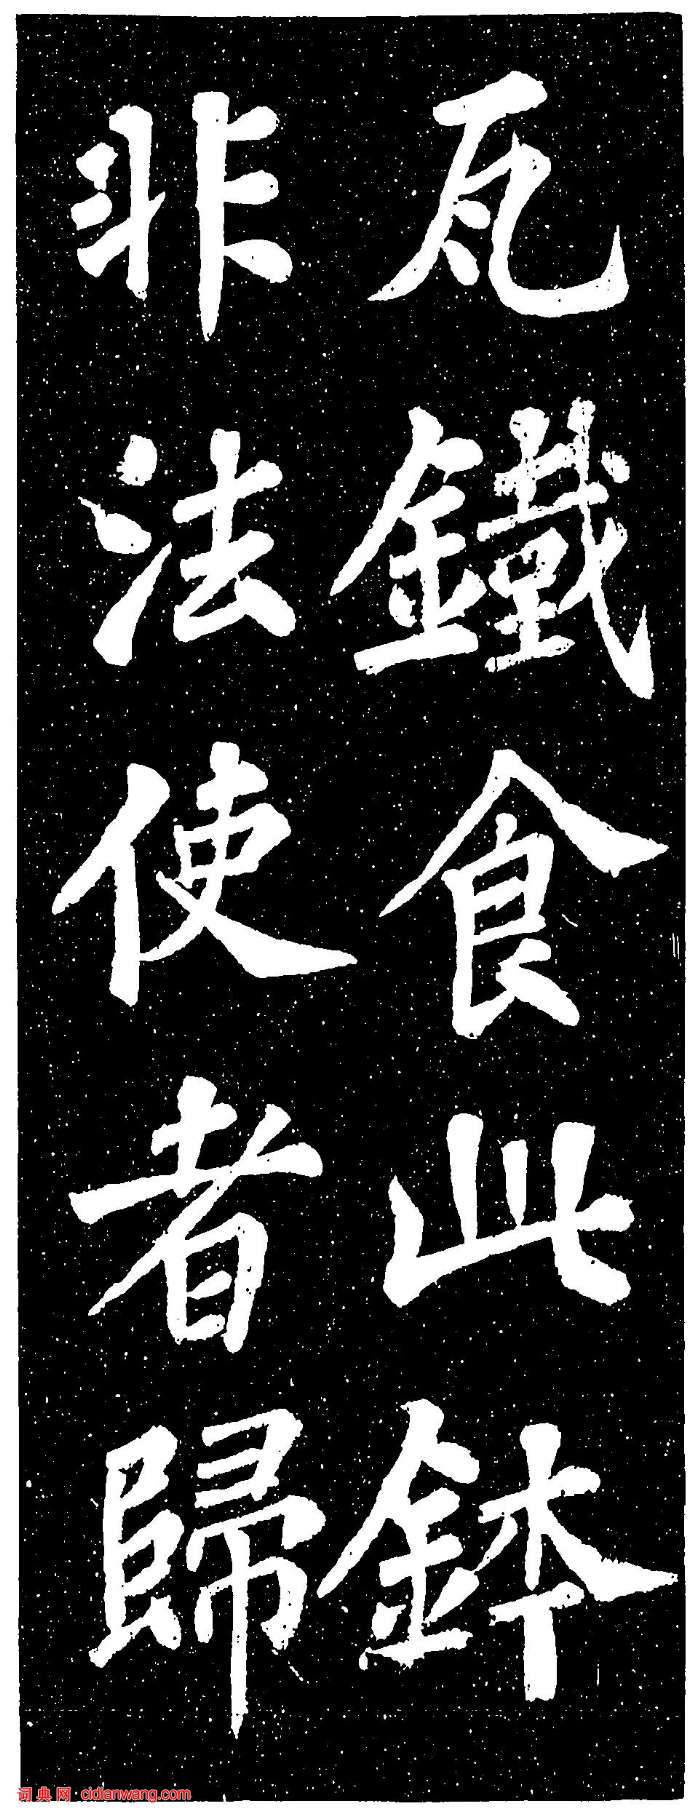 瓦鐵食此鉢
非法使者歸
词典网 cidianwang.com